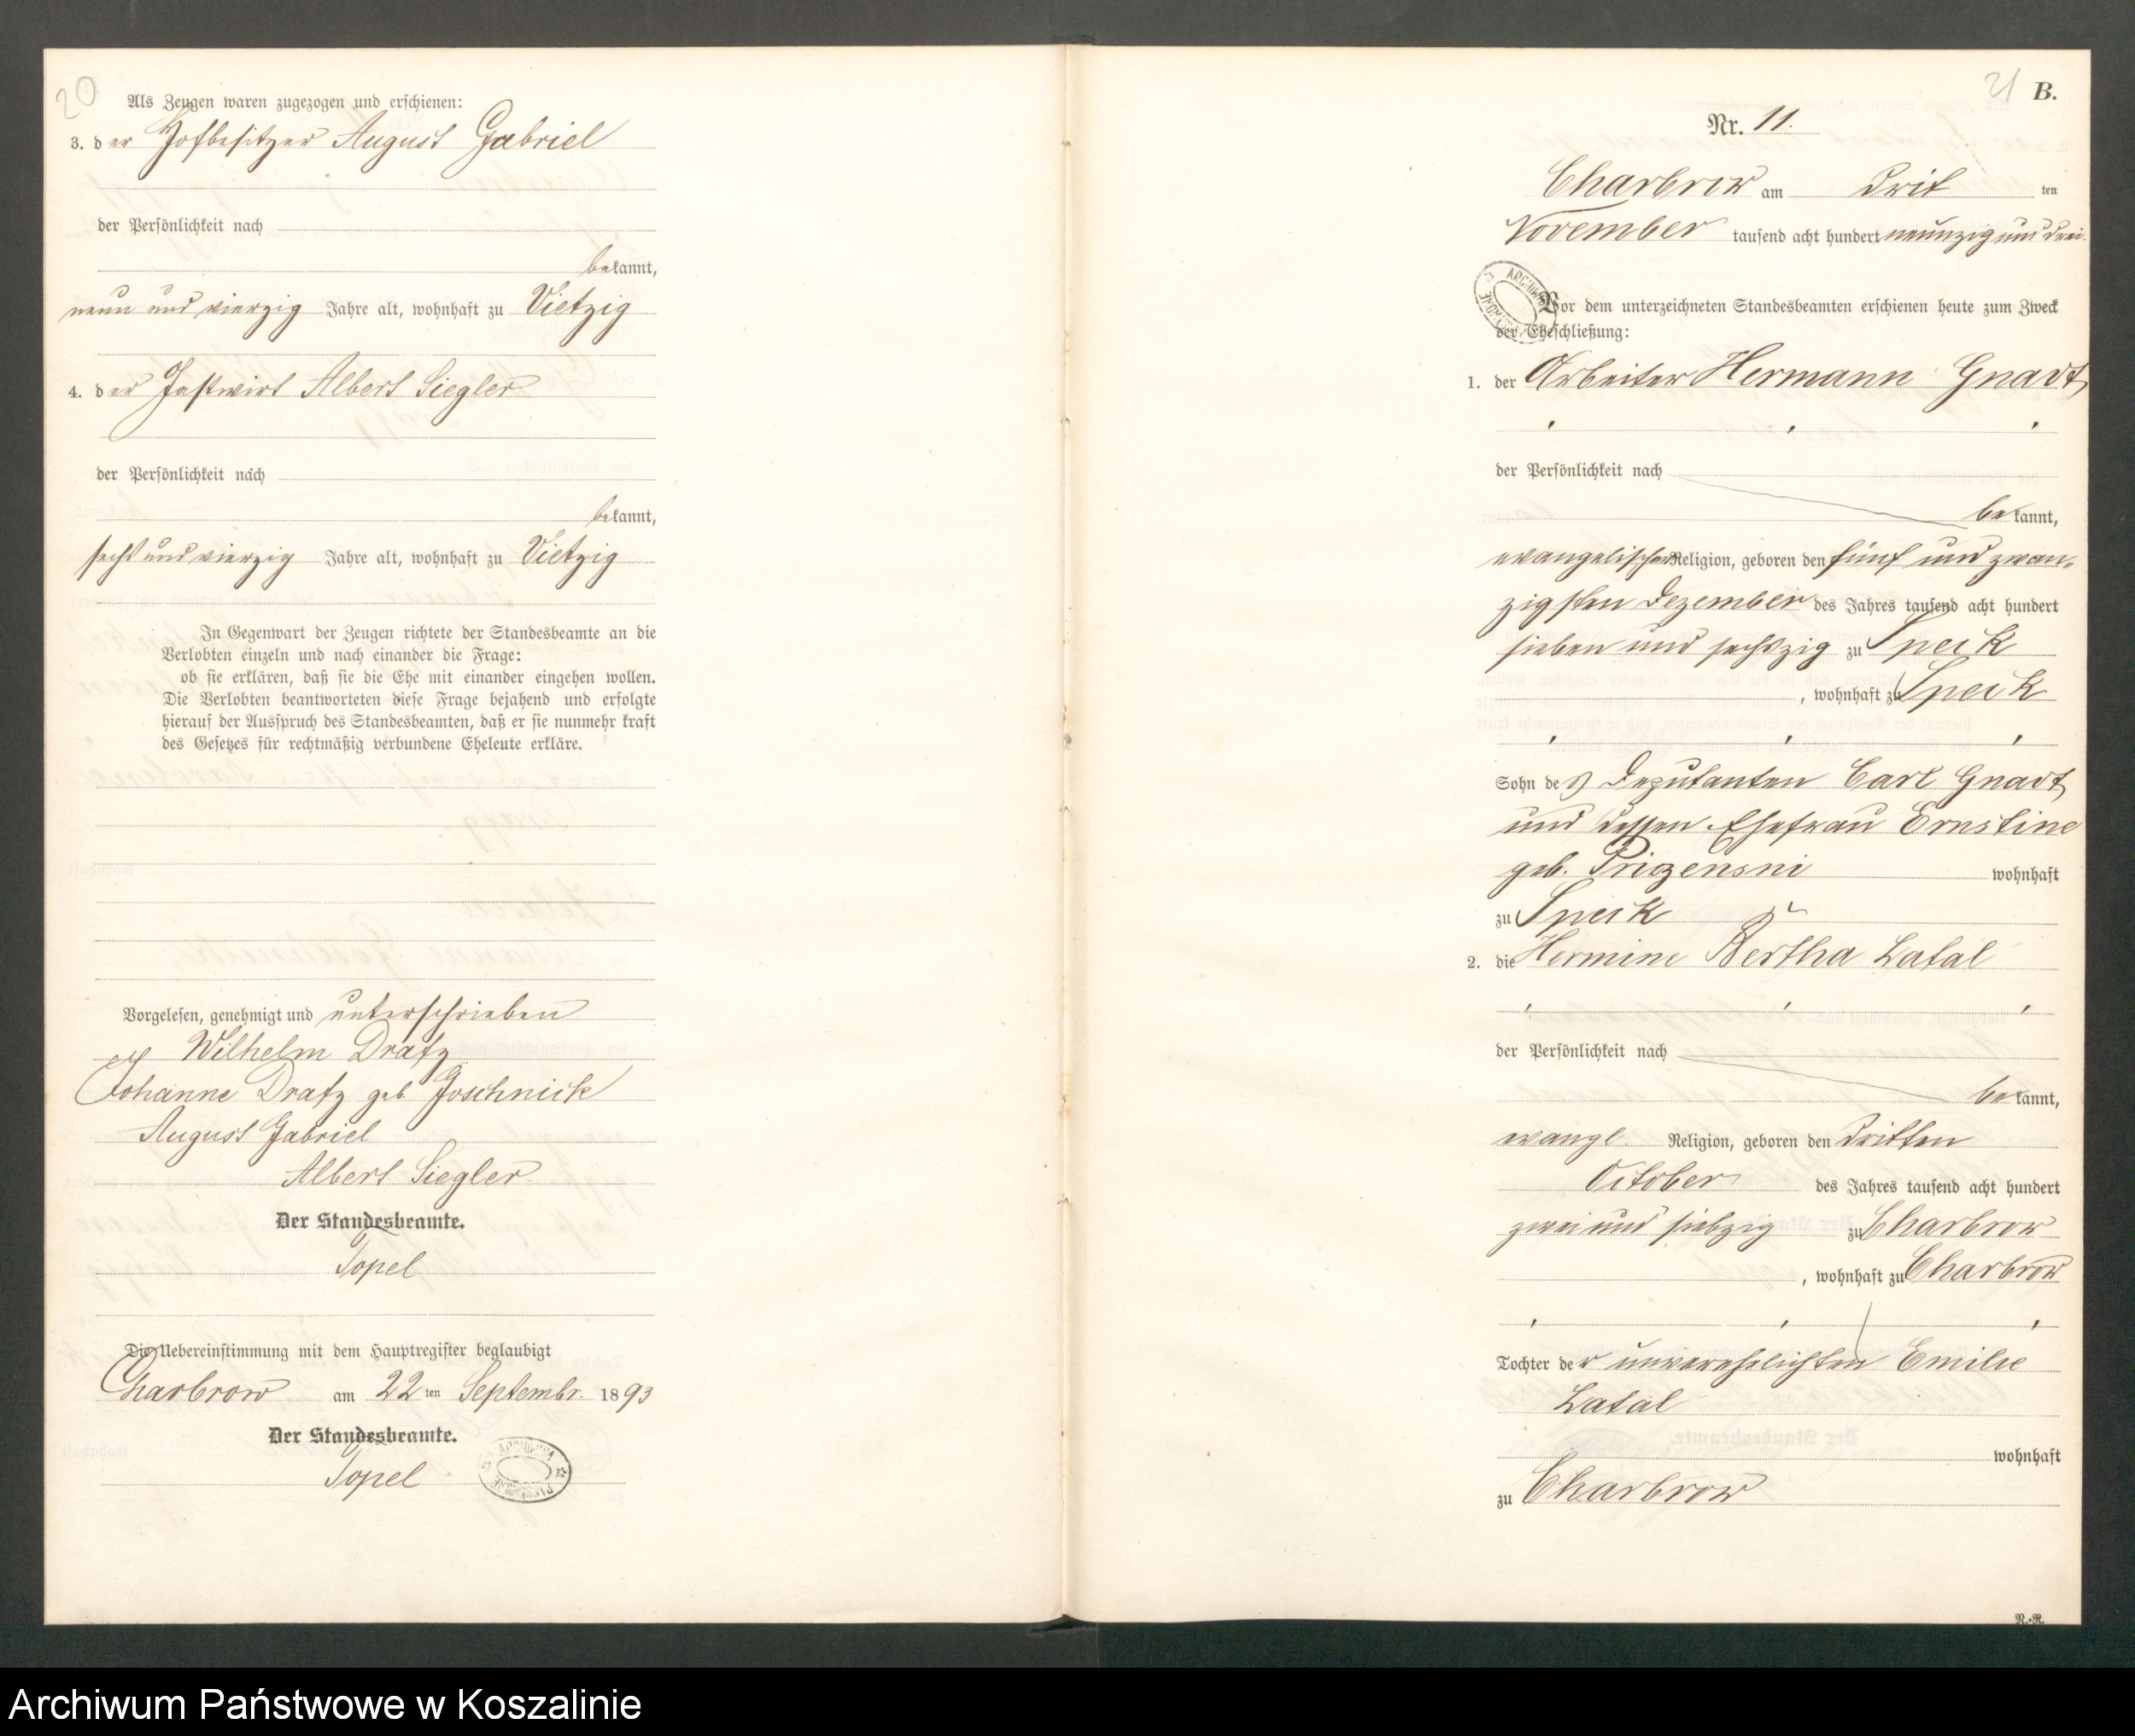 20
Als Zeugen waren zugezogen und erschienen:
3. der Hofbesitzer August Gabriel
der Persönlichkeit nach
bekannt,
neun und vierzig Jahre alt, wohnhaft zu Vietzig
4. der Gastwirt Albert Siegler
der Persönlichkeit nach
bekannt,
sechs und vierzig Jahre alt, wohnhaft zu Vietzig
In Gegenwart der Zeugen richtete der Standesbeamte an die
Verlobten einzeln und nach einander die Frage:
ob sie erklären, daß sie die Ehe mit einander eingehen wollen.
Die Verlobten beantworteten diese Frage bejahend und erfolgte
hierauf der Ausspruch des Standesbeamten, daß er sie nunmehr kraft
des Gesetzes für rechtmäßig verbundene Eheleute erkläre.
Vorgelesen, genehmigt und unterschrieben
Wilhelm Dratz
Johanne Dratz geb. Joschnick
August Gabriel
Albert Siegler
Der Standesbeamte.
Topel
Die Uebereinstimmung mit dem Hauptregister beglaubigt
Charbrow am 22 ten Septembr. 1893
Der Standesbeamte.
Topel
21
B.
Nr. 11.
Charbrow am drit ten
November tausend acht hundert neunzig und drei.
Vor dem unterzeichneten Standesbeamten erschienen heute zum Zweck
der Eheschließung:
1. der Arbeiter Hermann Gnadt
der Persönlichkeit nach
bekannt,
evangelischer Religion, geboren den fünf und zwan-
zigsten Dezember des Jahres tausend acht hundert
sieben und sechszig zu Speck
, wohnhaft zu Speck
Sohn des Deputanten Carl Gnadt
und dessen Ehefrau Ernstine
geb. wohnhaft
zu Speck
2. die Hermine Bertha Latal
der Persönlichkeit nach
bekannt,
evangl. Religion, geboren den dritten
October des Jahres tausend acht hundert
zwei und siebzig zu Charbrow
, wohnhaft zu Charbrow
Tochter der unverehelichten Emilie
Latal
wohnhaft
zu Charbrow
N.-R.
Archiwum Państwowe w Koszalinie